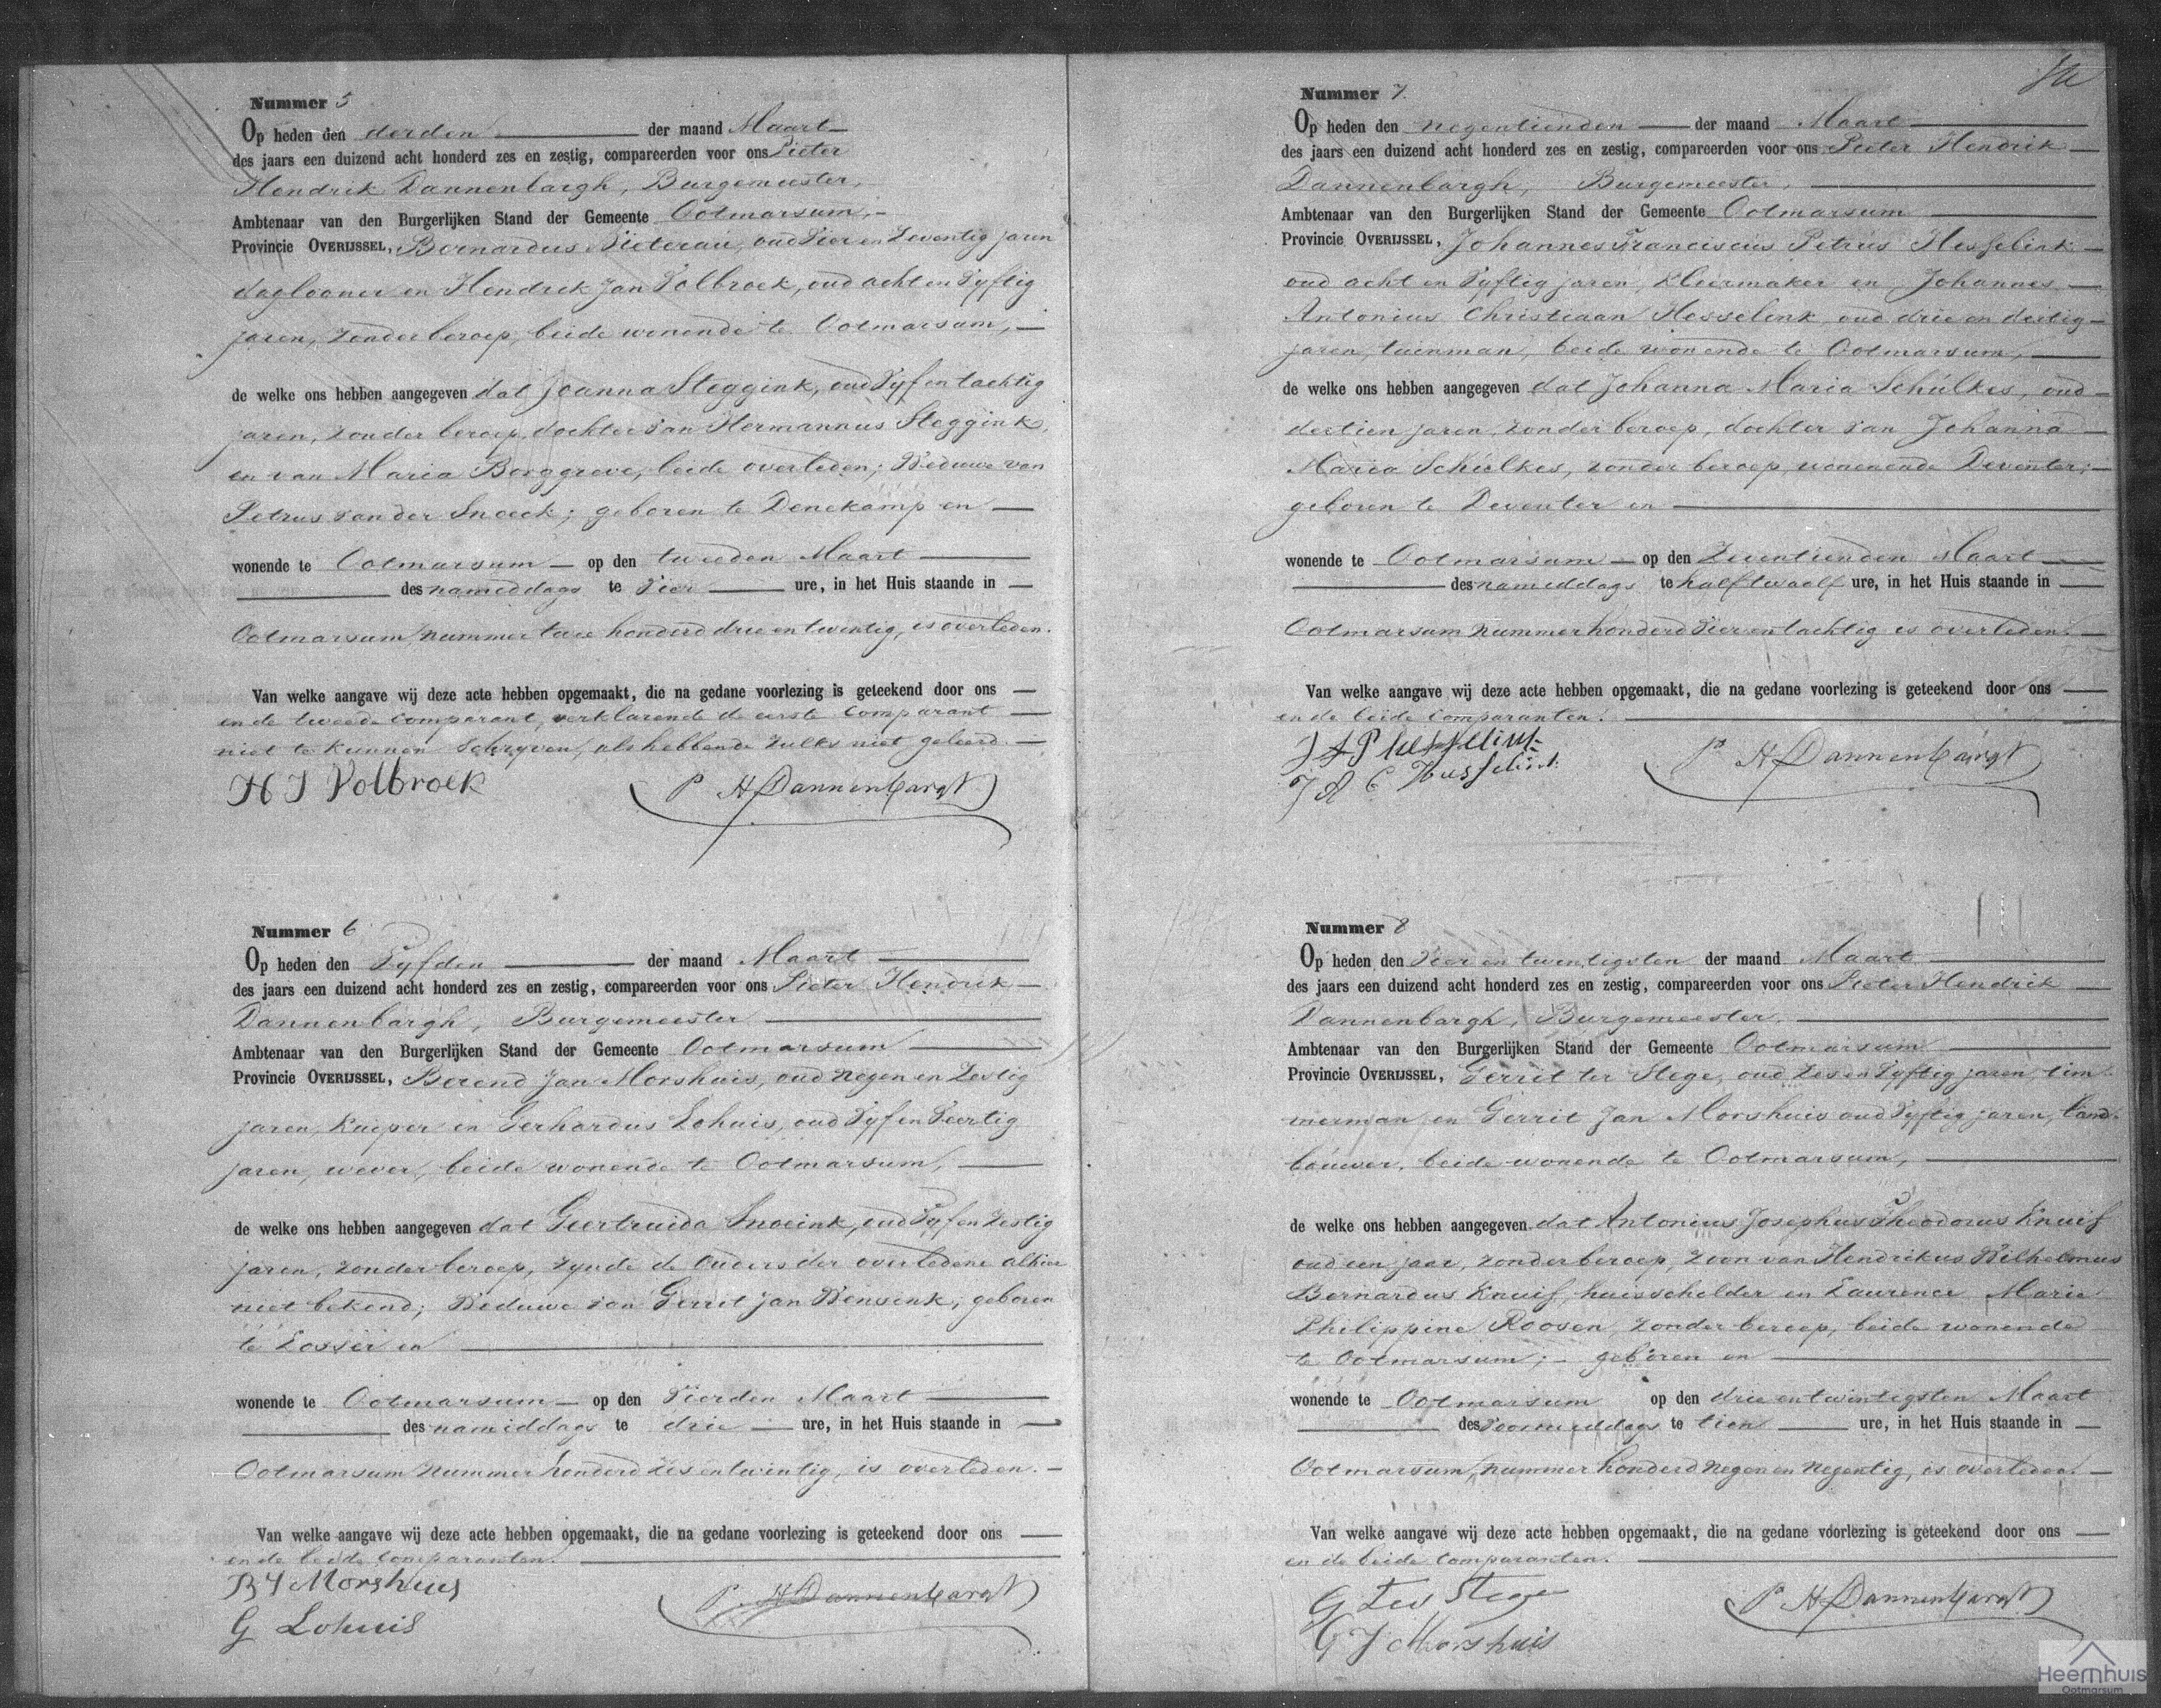 Nummer 5
Op heden den derden der maand Maart
des jaars een duizend acht honderd zes en zestig, compareerden voor ons Pieter
Hendrik Dannenbargh, Burgemeester,
Ambtenaar van den Burgerlijken Stand der Gemeente Ootmarsum,
Provincie OVERIJSSEL, Bernardus oud Vier en Zeventig jaren
daglooner en Hendrik Jan Volbroek, oud acht en Vyftig
jaren, zonder beroep, beide wonende te Ootmarsum,
de welke ons hebben aangegeven dat Joanna Steggink, oud Vyf en tachtig
jaren, zonder beroep, dochter van Hermannus Steggink,
en van Maria Borggreve, beide overleden; Weduwe van
Petrus van der Snoeck; geboren te Denekamp en
wonende te Ootmarsum op den tweeden Maart
des namiddags te Vier ure, in het Huis staande in
Ootmarsum, nummer twee honderd drie en twintig, is overleden.
Van welke aangave wij deze acte hebben opgemaakt, die na gedane voorlezing is geteekend door ons
en de tweede comparant, verklarende de eerste comparant
niet te kunnen schryven, als hebbende zulks niet geleerd.
H J Volbroek P H Dannenbargh
Nummer 6
Op heden den Vyfden der maand Maart
des jaars een duizend acht honderd zes en zestig, compareerden voor ons Pieter Hendrik
Dannenbargh, Burgemeester
Ambtenaar van den Burgerlijken Stand der Gemeente Ootmarsum
Provincie OVERIJSSEL, Berend Jan Morshuis, oud negen en Zestig
jaren, Kuiper en Gerhardus Lohuis, oud Vyf en Veertig
jaren, wever, beide wonende te Ootmarsum,
de welke ons hebben aangegeven dat Geertruida Snoeink, oud Vyf en Zestig
jaren, zonder beroep, zynde de Ouders der overledene alhier
niet bekend; Weduwe van Gerrit Jan Wensink, geboren
te Losser en
wonende te Ootmarsum op den Vierden Maart
des namiddags te drie ure, in het Huis staande in
Ootmarsum nummer honderd zes en twintig, is overleden.
Van welke aangave wij deze acte hebben opgemaakt, die na gedane voorlezing is geteekend door ons
en de beide comparanten.
B J Morshuis
G Lohuis P H Dannenbargh
Nummer 7
Op heden den negentienden der maand Maart
des jaars een duizend acht honderd zes en zestig, compareerden voor ons Pieter Hendrik
Dannenbargh, Burgemeester,
Ambtenaar van den Burgerlijken Stand der Gemeente Ootmarsum
Provincie OVERIJSSEL, Johannes Franciscus Petrus Hesselink
oud acht en Vyftig jaren, Kleermaker en Johannes
Antonius Christiaan Hesselink, oud drie en dertig
jaren, tuinman, beide wonende te Ootmarsum,
de welke ons hebben aangegeven dat Johanna Maria Schulkes, oud
dertien jaren, zonder beroep, dochter van Johanna
Maria Schulkes, zonder beroep, wonenende Deventer;
geboren te Deventer en
wonende te Ootmarsum op den Zeventienden Maart
des namiddags te half twaalf ure, in het Huis staande in
Ootmarsum nummer honderd Vier en tachtig is overleden.
Van welke aangave wij deze acte hebben opgemaakt, die na gedane voorlezing is geteekend door ons
en de beide comparanten.
J F P Hesselink
J A C Hesselink P H Dannenbargh
Nummer 8
Op heden den Vier en twintigsten der maand Maart
des jaars een duizend acht honderd zes en zestig, compareerden voor ons Pieter Hendrik
Dannenbargh, Burgemeester,
Ambtenaar van den Burgerlijken Stand der Gemeente Ootmarsum
Provincie OVERIJSSEL, Gerrit ter Stege, oud Zes en Vyftig jaren, tim-
merman, en Gerrit Jan Morshuis oud Vyftig jaren, land-
bouwer, beide wonende te Ootmarsum,
de welke ons hebben aangegeven dat Antonius Josephus Theodorus Knuif
oud een jaar, zonder beroep, zoon van Hendrikus Wilhelmus
Bernardus Knuif, huisschilder en Laurence Marie
Philippine Roosen, zonder beroep, beide wonende
te Ootmarsum; geboren en
wonende te Ootmarsum op den drie en twintigsten Maart
des Voormiddags te tien ure, in het Huis staande in
Ootmarsum, nummer honderd negen en negentig, is overleden.
Van welke aangave wij deze acte hebben opgemaakt, die na gedane voorlezing is geteekend door ons
en de beide comparanten.
G ter Stege
G J Morshuis P H Dannenbargh
Heemhuis
Ootmarsum